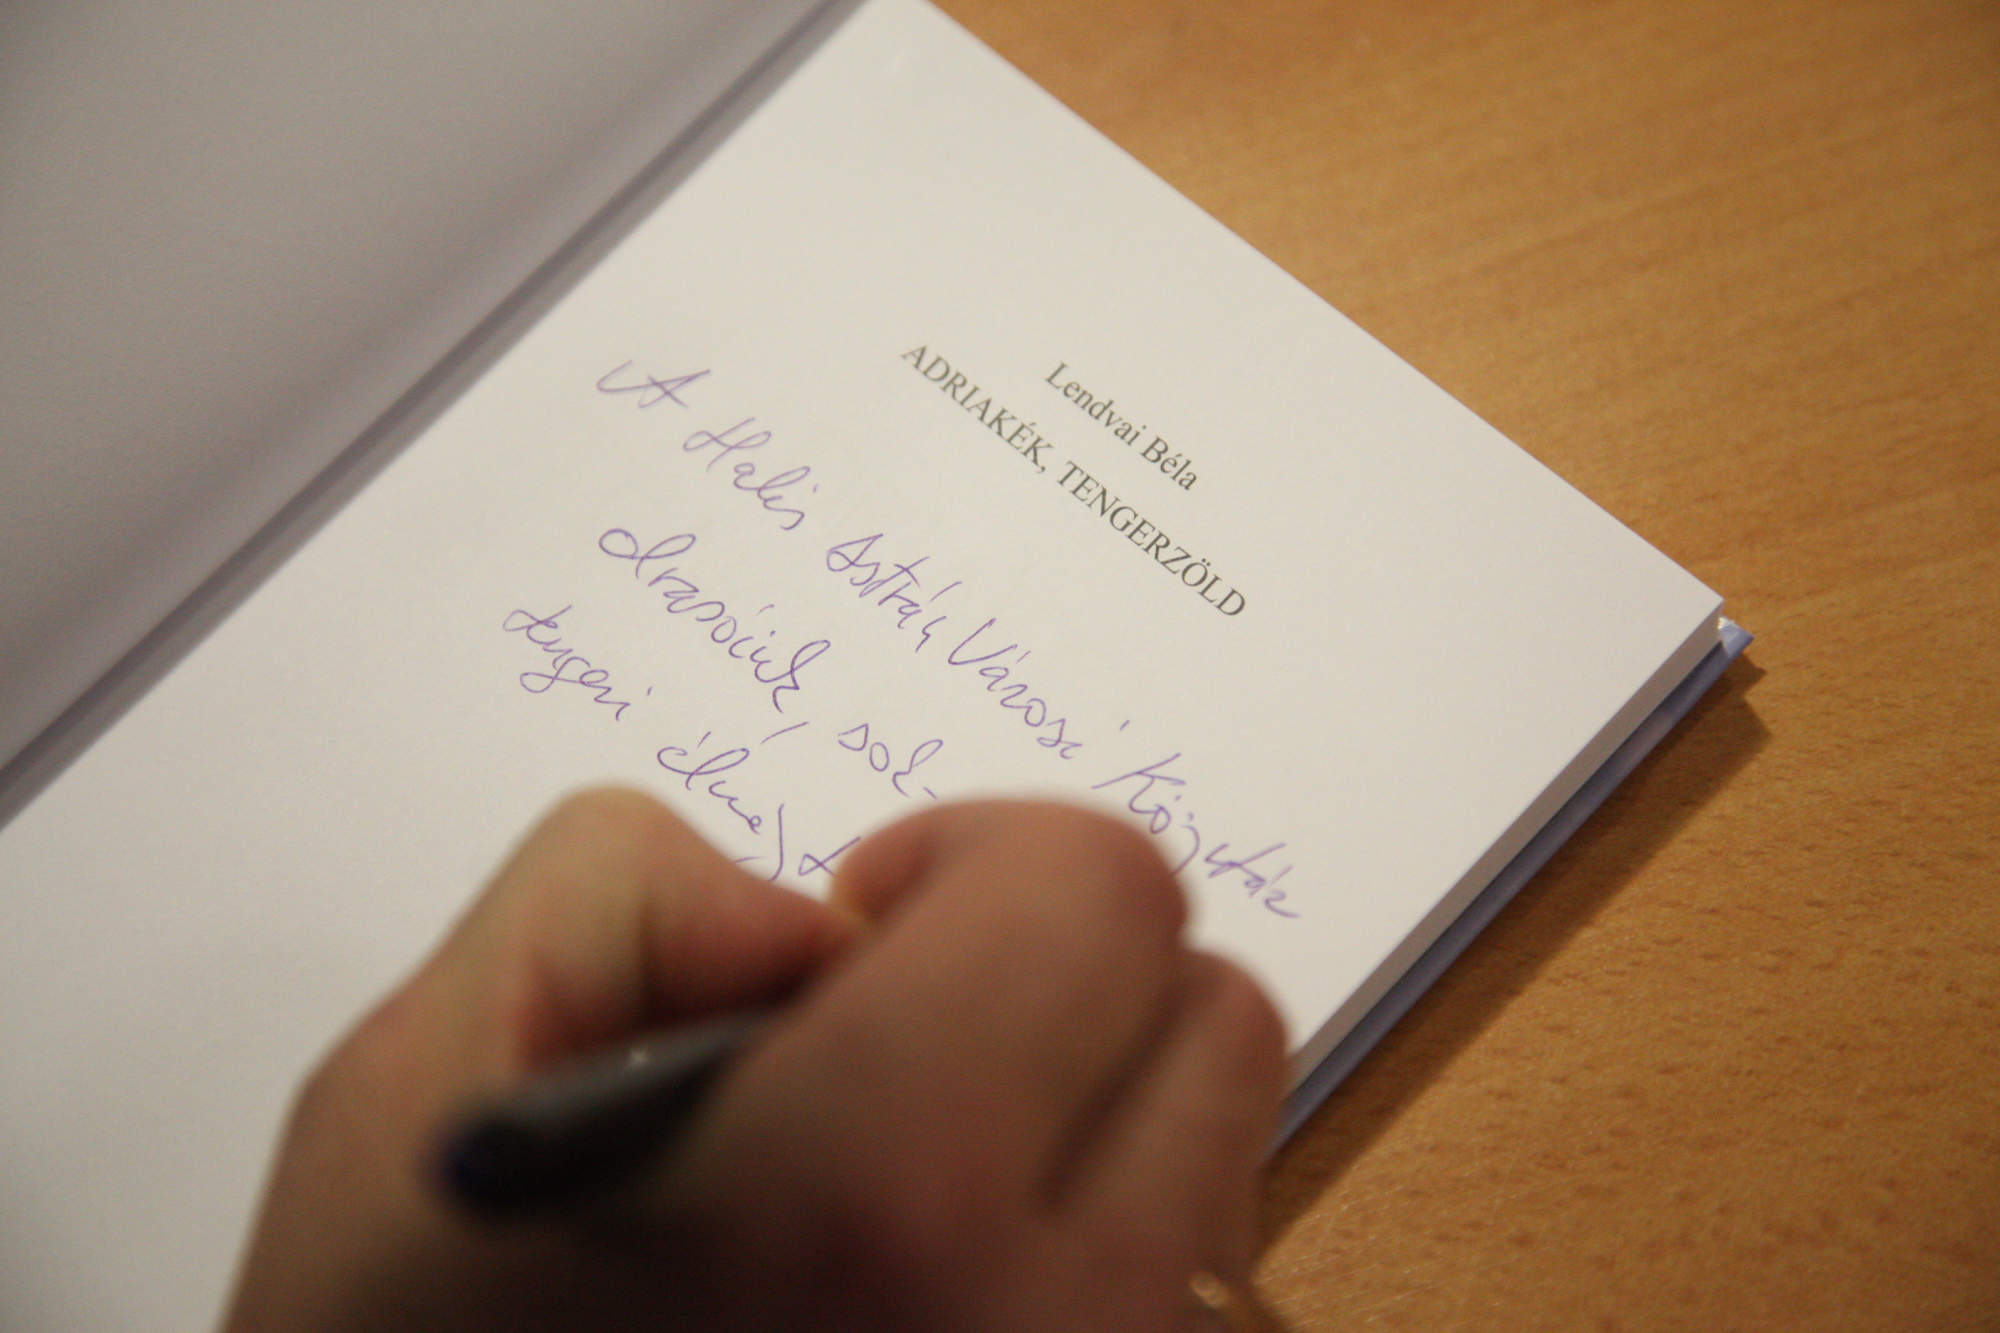 Lendvai Béla
ADRIAKÉK, TENGERZÖLD
A Halis István Városi Könyvtár
olvasóinak, sok
tengeri élményt